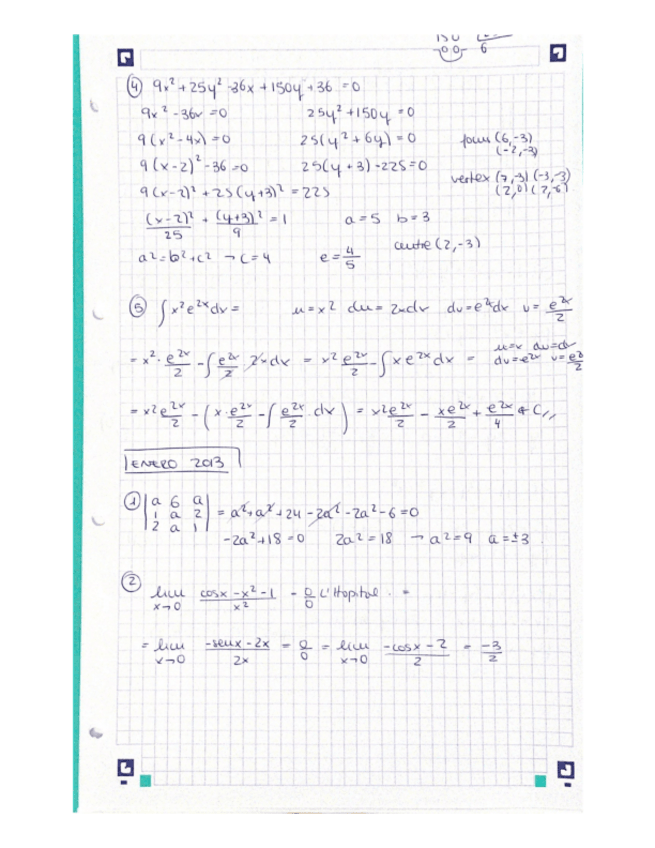 150
-00- 6
④ 9x² + 25y² -36x + 150y + 36 = 0
9x² - 36x = 0 25y² + 150y = 0
9(x² - 4x) = 0 25(y² + 6y) = 0 focus (6,-3)
(-2,-3)
9(x-2)² - 36 = 0 25(y+3) - 225 = 0 vertex (7,-3) (-3,-3)
(2,0) (2,-6)
9(x-2)² + 25(y+3)² = 225
(x-2)²/25 + (y+3)²/9 = 1 a = 5 b = 3
a² = b² + c² → c = 4 e = 4/5 centre (2,-3)
⑤ ∫x²e²ˣdx = u = x² du = 2xdx dv = e²ˣdx v = e²ˣ/2
= x² · e²ˣ/2 - ∫e²ˣ/2 · 2xdx = x² e²ˣ/2 - ∫xe²ˣdx = u=x du=dx
dv=e²ˣ v=e²ˣ/2
= x² e²ˣ/2 - (x · e²ˣ/2 - ∫e²ˣ/2 · dx) = x² e²ˣ/2 - xe²ˣ/2 + e²ˣ/4 + C //
ENERO 2013
① |a 6 a|
|1 a 2| = a² + a² + 24 - 2a² - 2a² - 6 = 0
|2 a 1|
-2a² + 18 = 0 2a² = 18 → a² = 9 a = ±3
②
lim x→0 (cosx - x² - 1)/x² = 0/0 L'Hopital . =
= lim x→0 (-senx - 2x)/2x = 0/0 = lim x→0 (-cosx - 2)/2 = -3/2